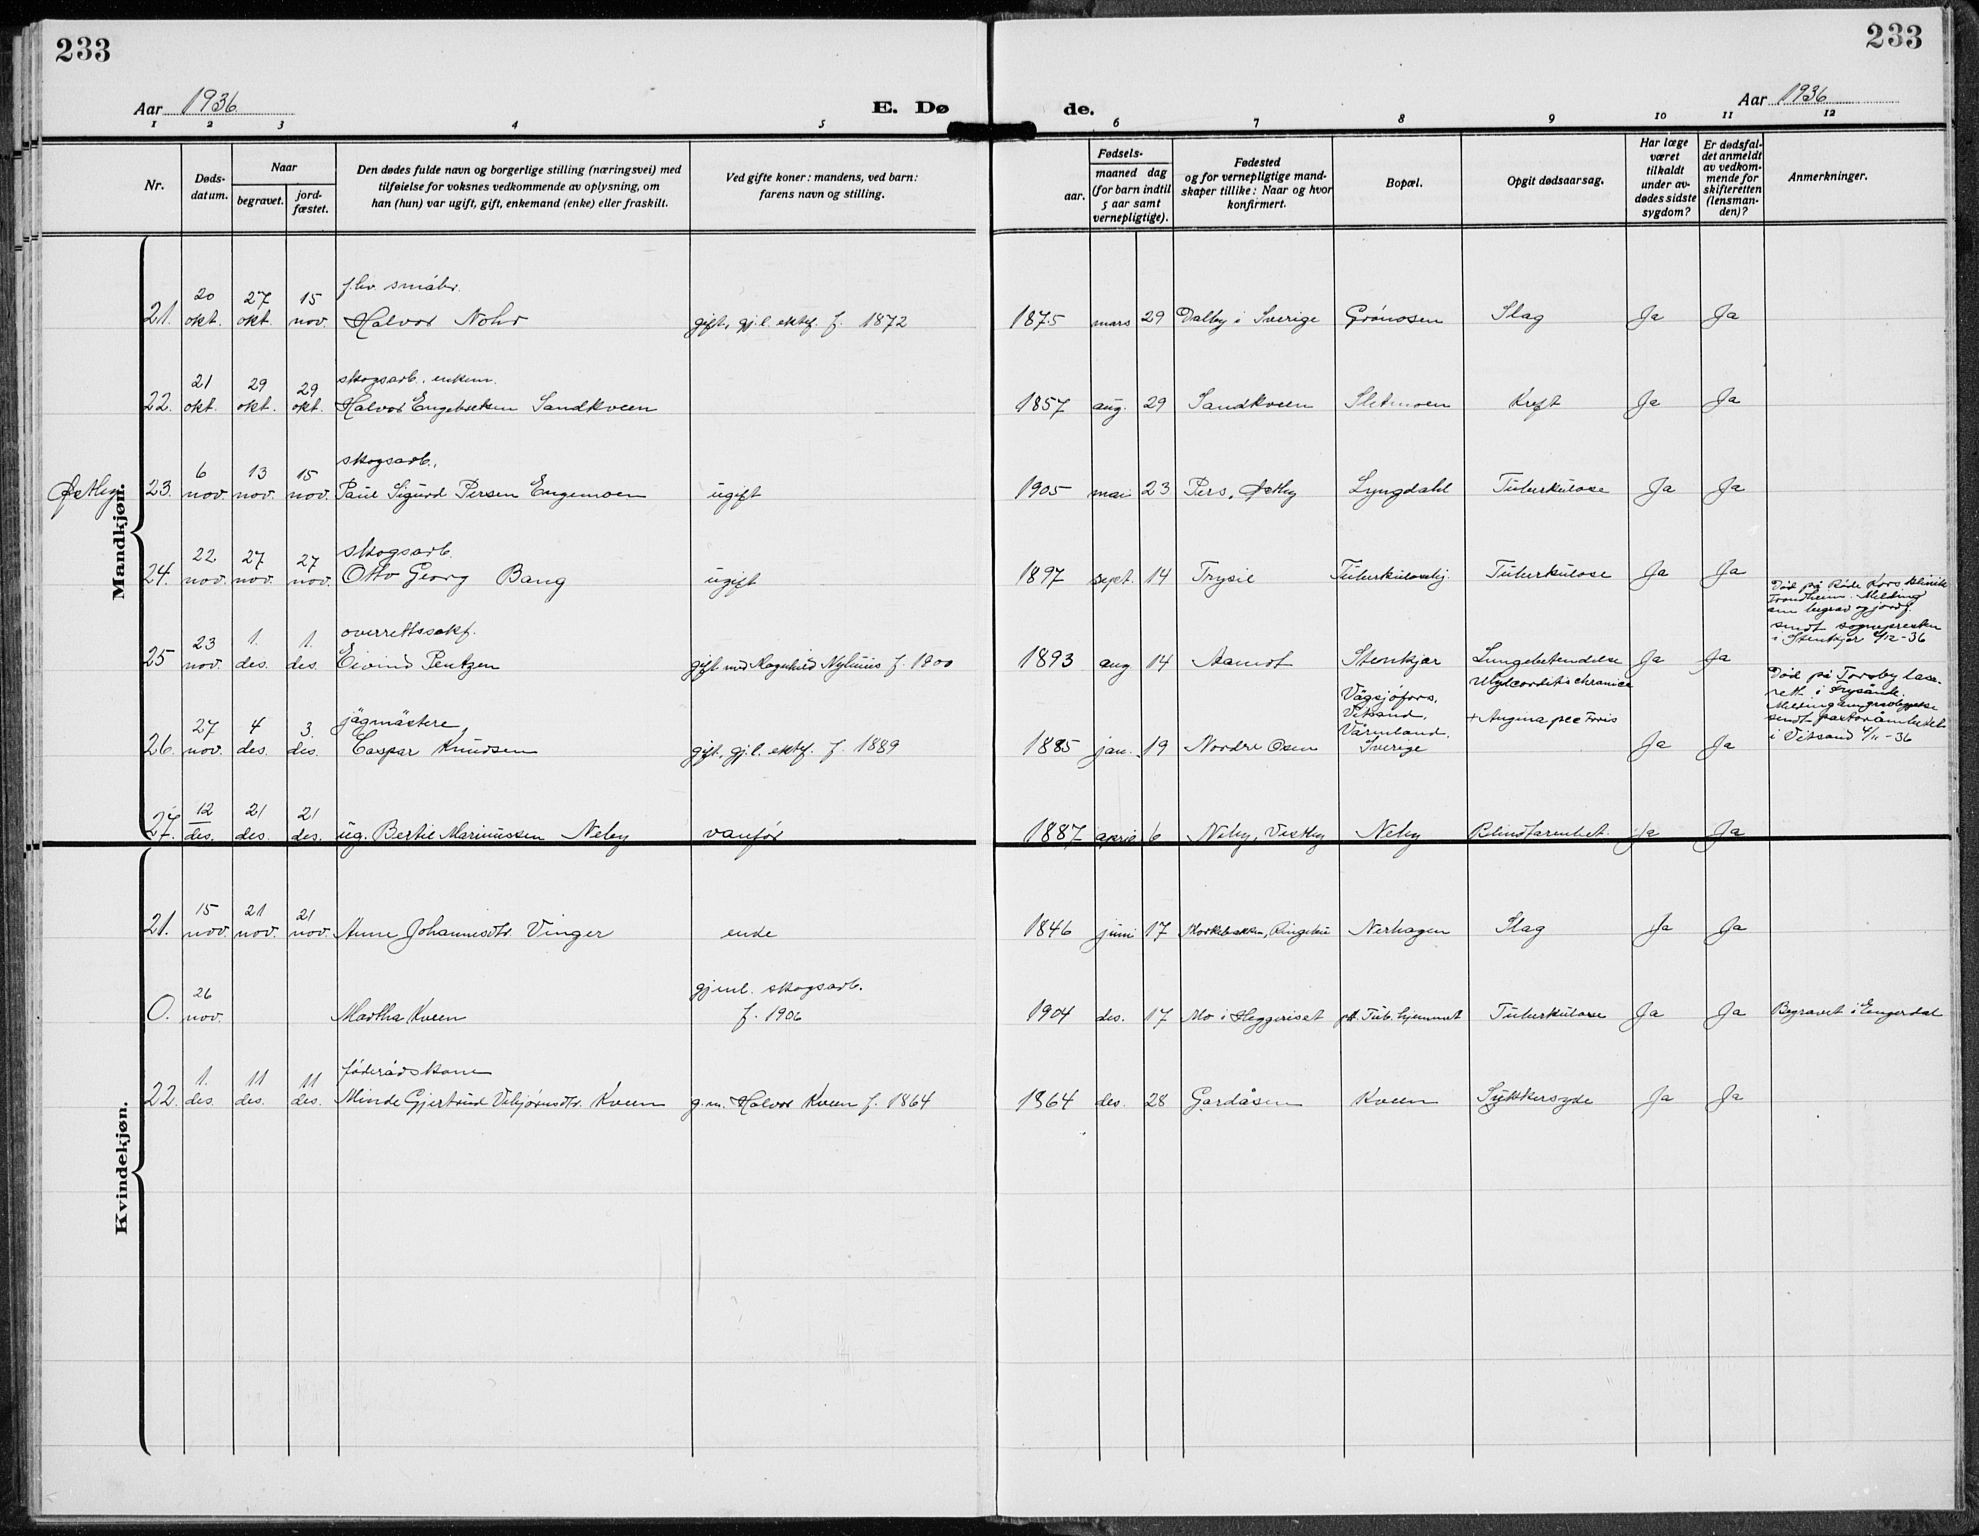 233
233
Aar 1936
E. Dø
de.
Aar 1936
1 2 3 4 5 6 7 8 9 10 11 12
Nr.
Døds-
datum.
Naar
begravet.
jord-
fæstet.
Den dødes fulde navn og borgerlige stilling (næringsvei) med
tilføielse for voksnes vedkommende av oplysning, om
han (hun) var ugift, gift, enkemand (enke) eller fraskilt.
Ved gifte koner: mandens, ved barn:
farens navn og stilling.
Fødsels-
aar.
maaned dag
(for barn indtil
5 aar samt
vernepligtige).
Fødested
og for vernepligtige mand-
skaper tillike: Naar og hvor
konfirmert.
Bopæl.
Opgit dødsaarsag.
Har læge
været
tilkaldt
under av-
dødes sidste
sygdom?
Er dødsfal-
det anmeldt
av vedkom-
mende for
skifteretten
(lensman-
den)?
Anmerkninger.
Mandkjøn.
20 27 15 f.hv. småbr.
21. okt. okt. nov. Halvor Nohr gift, gj.l. ektef. f. 1872 1875 mars 29 Dalby i Sverige Grønosen Slag Ja Ja
21 29 29 skogsarb., enkem.
22. okt. okt. okt. Halvor Engebretsen Sandkveen 1857 aug. 29 Sandkveen Sletmoen Kreft Ja Ja
6 13 15 skogsarb.,
Østby 23. nov. nov. nov. Paul Sigurd Persen Engemoen ugift 1905 mai 23 Pers, Østby Lyngdahl Tuberkulose Ja Ja
22 27 27 skogsarb.
24. nov. nov. nov. Otto Georg Bang ugift 1897 sept. 14 Trysil Tuberkulosehj. Tuberkulose Ja Ja
23 1. 1. overrettssakf.
25 nov. des. des. Eivind Pentzen gift med Ragnhild Nyhuus f. 1900 1893 aug 14 Aamot Stenkjær Lungebetendelse Ja Ja
Død på Røde Kors klinikk
Trondheim. Melding
om begrav og jordf.
sendt sognepresten
i Stenkjær 4/12-36
27 4 3. jägmästere
26. nov. des. des. Caspar Knudsen gift, gj.l. ektef. f. 1889 1885 jan. 19 Nordre Osen
Vägsjöfors,
Vitsand,
Värmland.
Sverige
Myocarditis chronica
+ Angina pectoris
Ja Ja
Død på Torsby lasa-
rett i Frysände.
Melding
sendt pastorämbetet
i Vitsand 4/11-36
12 21 21
27. des. des. des. ug. Bertil Marinussen Neby vanfør 1887 april 6 Neby, Vestby Neby Blindtarmbet. Ja Ja
Kvindekjøn.
15 21 21
21. nov. nov. nov. Anne Johannesdtr. Vinger enke 1846 juni 17 Morkebakken, Ringebu Nerhagen Slag Ja Ja
26 gjenl. skogsarb.
0. nov. Martha Kveen f. 1906 1904 des. 17 Mo i Heggeriset pt. Tub. hjemmet Tuberkulose Ja Ja Begravet i Engerdal
1. 11 11 føderådskone
22. des. des. des. Minde Gjertrud Vibjørnsdtr. Kveen g.m. Halvor Kveen f. 1864 1864 des. 28 Gardåsen Kveen Sukkersyke Ja Ja